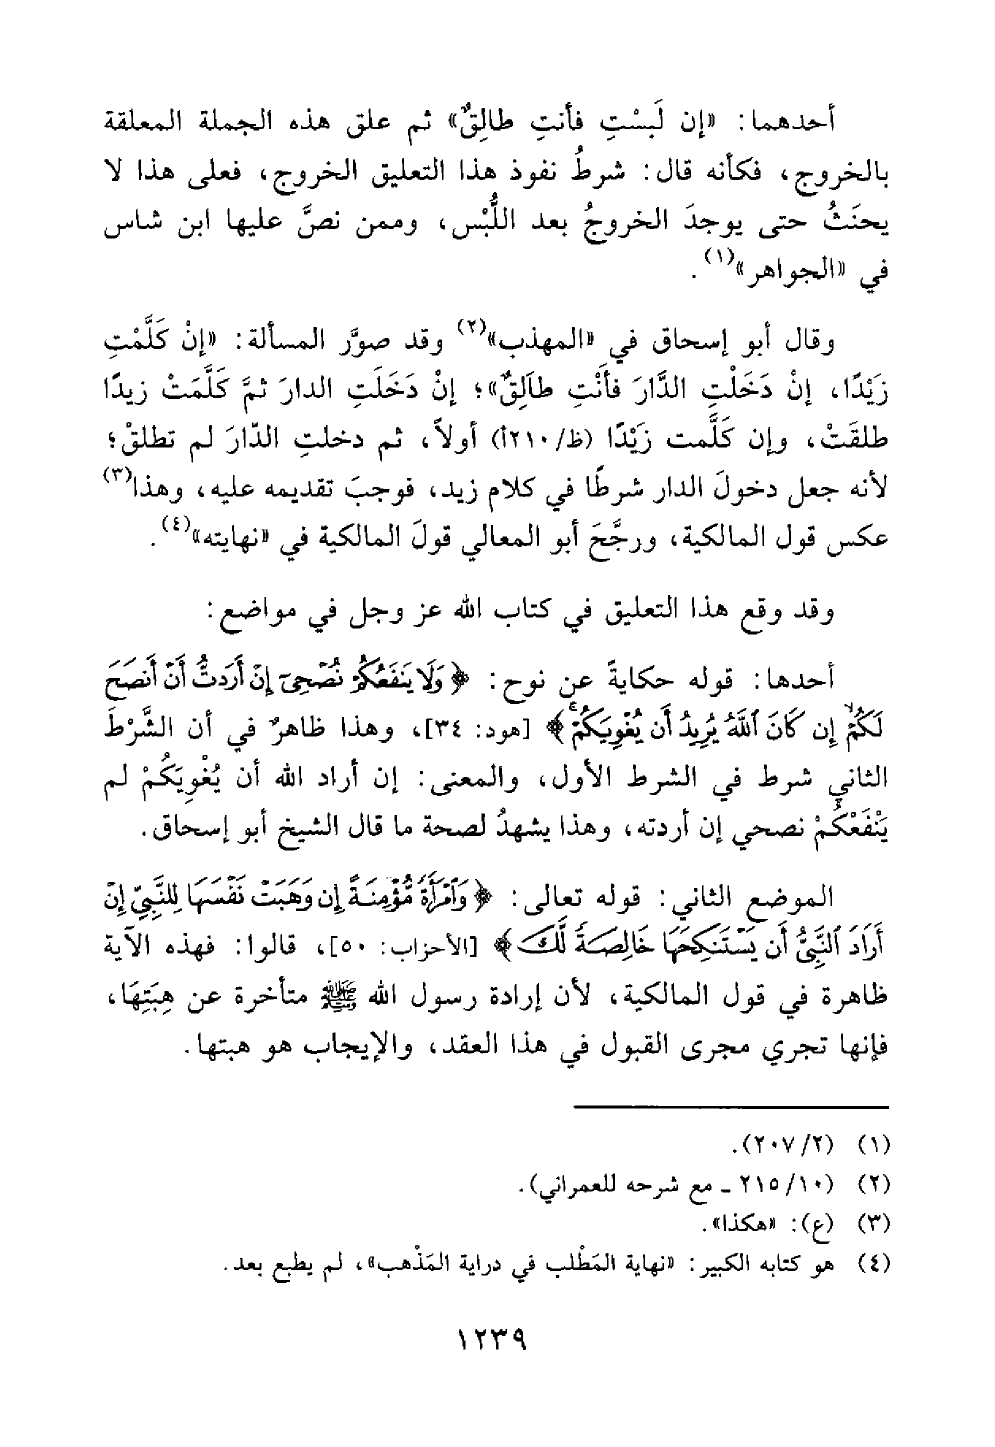 أحدهما: «إن لَبِسْتِ فأنتِ طالِقٌ» ثم علق هذه الجملة المعلقة
بالخروج، فكأنه قال: شرطُ نفوذ هذا التعليق الخروج، فعلى هذا لا
يحنَثُ حتى يوجدَ الخروجُ بعد اللُّبْس، وممن نصَّ عليها ابن شاس
في «الجواهر»(١).
وقال أبو إسحاق في «المهذب»(٢) وقد صوَّر المسألة: «إنْ كَلَّمْتِ
زَيْدًا، إنْ دَخَلْتِ الدَّارَ فأَنْتِ طالَقٌ»؛ إنْ دَخَلَتِ الدارَ ثمَّ كَلَّمَتْ زيدًا
طلقَتْ، وإن كَلَّمت زَيْدًا (ظ/٢١٠أ) أولاً، ثم دخلتِ الدّارَ لم تطلقْ؛
لأنه جعل دخولَ الدار شرطًا في كلام زيد، فوجبَ تقديمه عليه، وهذا(٣)
عكس قول المالكية، ورجَّحَ أبو المعالي قولَ المالكية في «نهايته»(٤).
وقد وقع هذا التعليق في كتاب الله عز وجل في مواضع:
أحدها: قوله حكايةً عن نوح: ﴿وَلَا يَنفَعُكُمْ نُصْحِىٓ إِنْ أَرَدتُّ أَنْ أَنصَحَ
لَكُمْ إِن كَانَ ٱللَّهُ يُرِيدُ أَن يُغْوِيَكُمْ﴾ [هود: ٣٤]، وهذا ظاهرٌ في أن الشَّرْطَ
الثاني شرط في الشرط الأول، والمعنى: إن أراد الله أن يُغْوِيَكُمْ لم
يَنْفَعْكُمْ نصحي إن أردته، وهذا يشهدُ لصحة ما قال الشيخ أبو إسحاق.
الموضع الثاني: قوله تعالى: ﴿وَٱمْرَأَةً مُّؤْمِنَةً إِن وَهَبَتْ نَفْسَهَا لِلنَّبِيِّ إِنْ
أَرَادَ ٱلنَّبِيُّ أَن يَسْتَنكِحَهَا خَالِصَةً لَّكَ﴾ [الأحزاب: ٥٠]، قالوا: فهذه الآية
ظاهرة في قول المالكية، لأن إرادة رسول الله ﷺ متأخرة عن هِبَتِهَا،
فإنها تجري مجرى القبول في هذا العقد، والإيجاب هو هبتها.
(١) (٢/٢٠٧).
(٢) (١٠/٢١٥ ـ مع شرحه للعمراني).
(٣) (ع): «هكذا».
(٤) هو كتابه الكبير: «نهاية المَطْلب في دراية المَذْهب»، لم يطبع بعد.
١٢٣٩